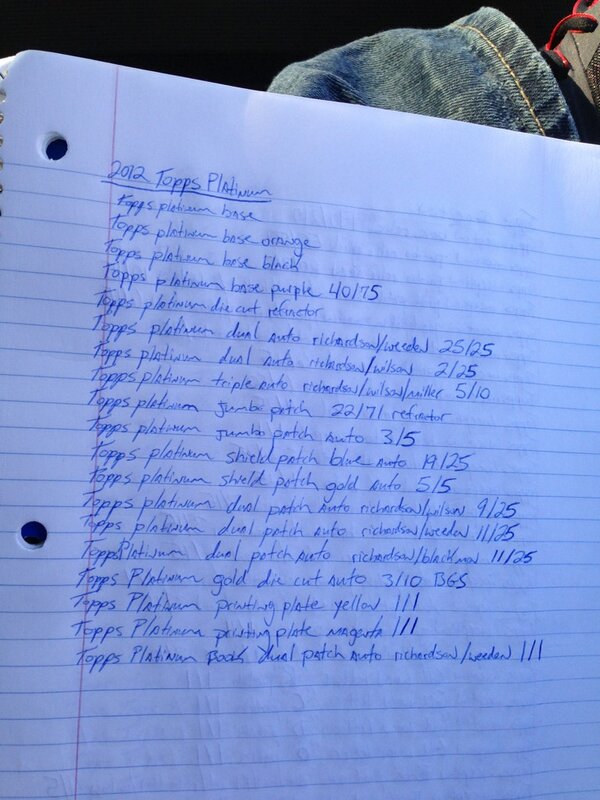 2012 Topps Platinum
Topps platinum base
Topps platinum base orange
Topps platinum base black
Topps platinum base purple 40/75
Topps platinum die cut refractor
Topps platinum dual Auto richardson/weeden 25/25
Topps platinum dual Auto richardson/wilson 2/25
Topps platinum triple Auto richardson/wilson/miller 5/10
Topps platinum jumbo patch 22/71 refractor
Topps platinum jumbo patch Auto 3/5
Topps platinum shield patch blue Auto 19/25
Topps platinum shield patch gold Auto 5/5
Topps platinum dual patch Auto richardson/wilson 9/25
Topps platinum dual patch Auto richardson/weeden 11/25
Topps Platinum dual patch Auto richardson/blackmon 11/25
Topps Platinum gold die cut Auto 3/10 BGS
Topps Platinum printing plate yellow 1/1
Topps Platinum printing plate magenta 1/1
Topps Platinum Book dual patch Auto richardson/weeden 1/1